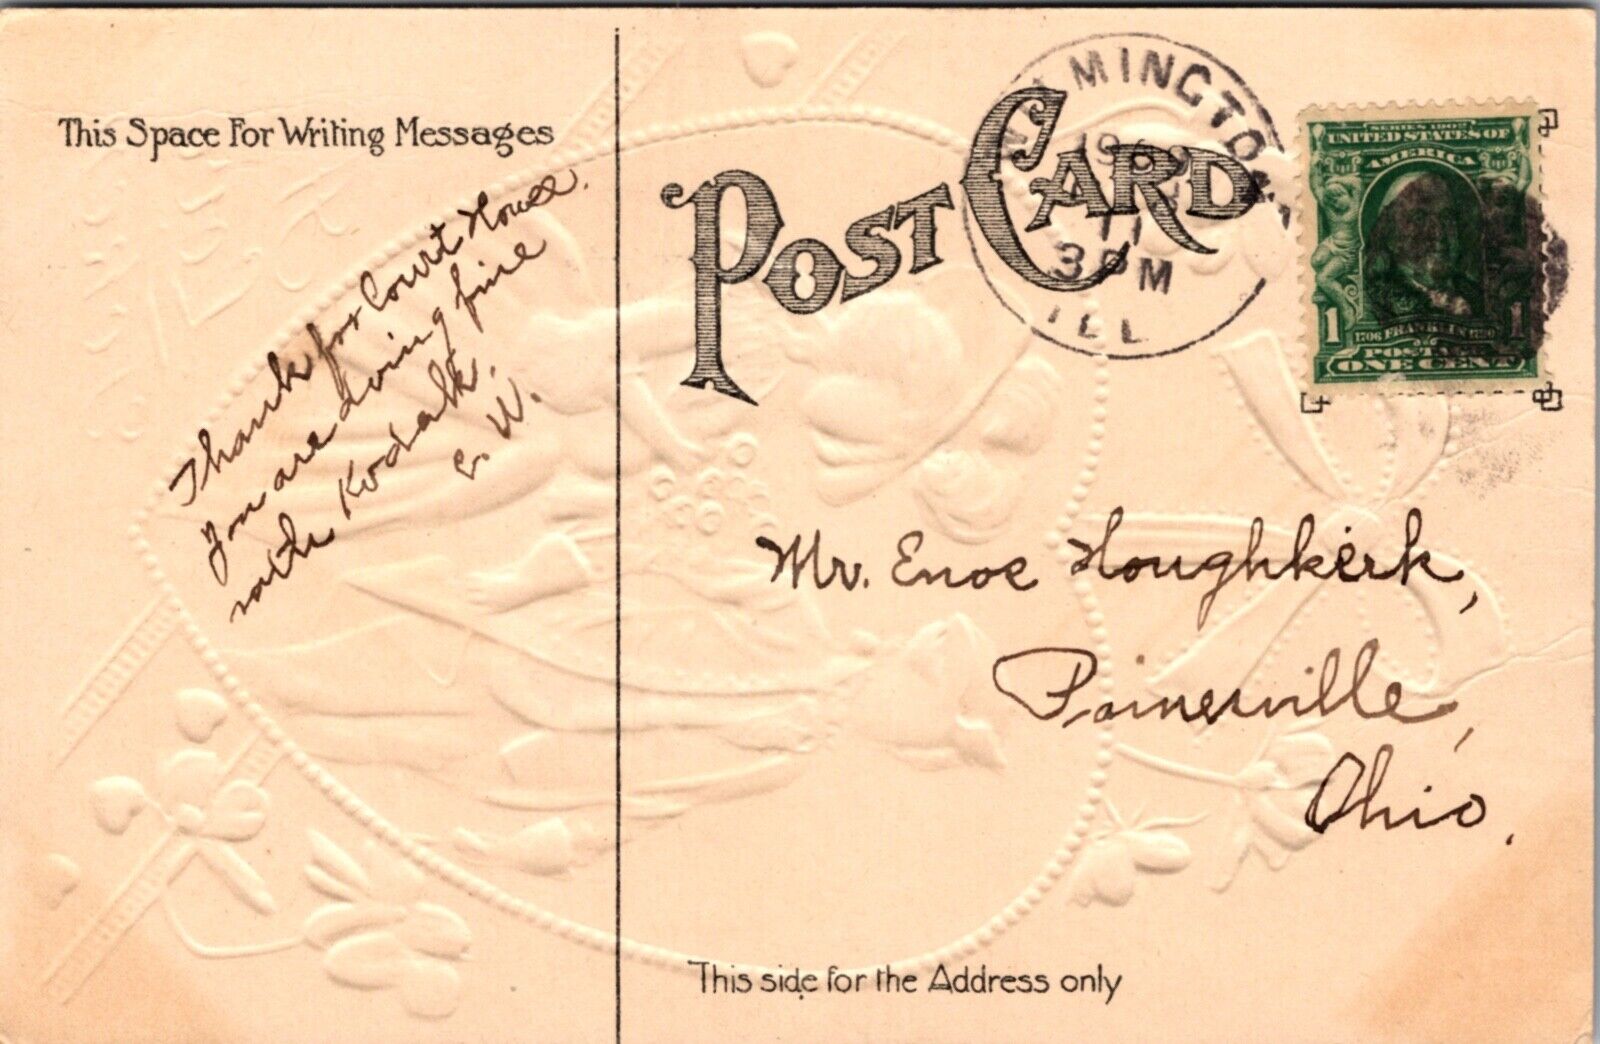 This Space For Writing Messages
Thank for Court House.
You are doing fine
with Kodak.
E. W.
POST CARD
WILMINGTON
11
3 PM
ILL
SERIES 1902
UNITED STATES OF
AMERICA
1 1
1706 FRANKLIN 1790
ONE CENT
Mr. Enoe Houghkerk,
Painesville,
Ohio.
This side for the Address only